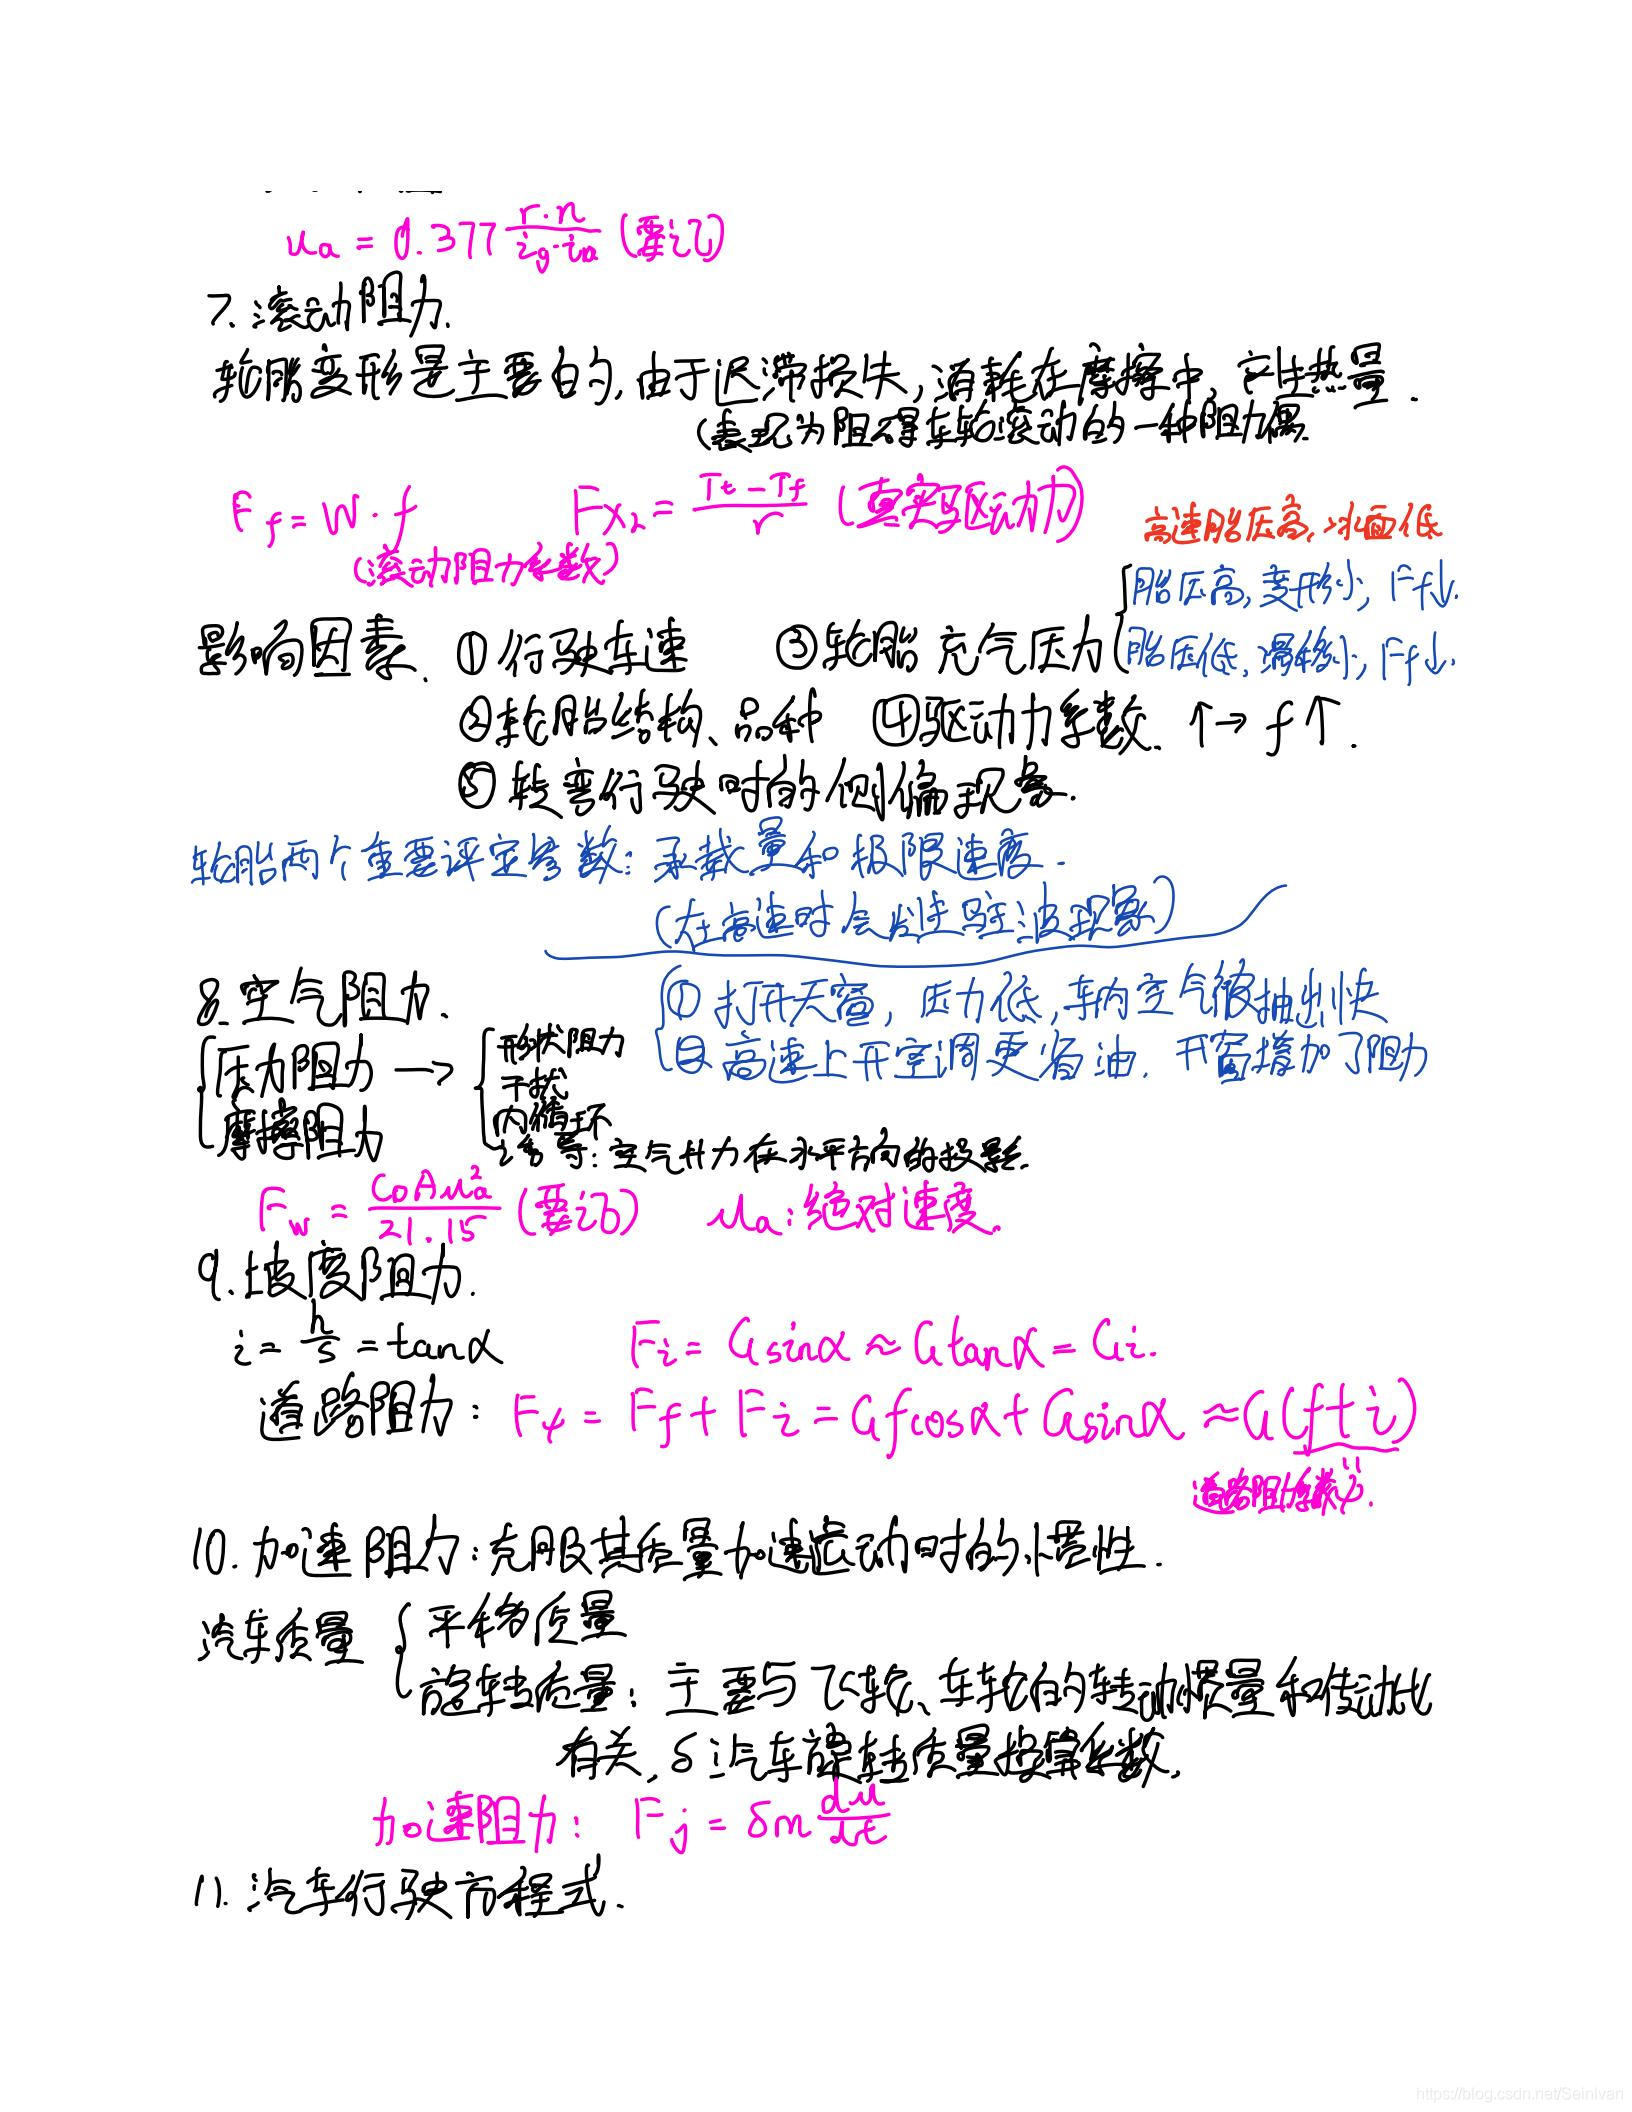 ua = 0.377 r·n / ig·i0 (要记)
7. 滚动阻力.
轮胎变形是主要的, 由于迟滞损失, 消耗在摩擦中, 产生热量.
(表现为阻碍车轮滚动的一种阻力偶.
Ff = W·f   Fx2 = (Tt-Tf)/r (真实驱动力)
(滚动阻力系数)
高速胎压高, 冰面低
胎压高, 变形小, Ff↓.
影响因素. ①行驶车速 ③轮胎充气压力
胎压低, 滑移小, Ff↓.
②轮胎结构、品种 ④驱动力系数. ↑→ f↑.
⑤转弯行驶时的侧偏现象.
轮胎两个重要评定参数: 承载量和极限速度.
(在高速时会发生驻波现象)
8. 空气阻力.
①打开天窗, 压力低, 车内空气被抽出快
②高速上开空调更省油. 开窗增加了阻力
压力阻力 → 形状阻力
干扰
摩擦阻力 内循环
诱导: 空气升力在水平方向的投影.
Fw = CDAua² / 21.15 (要记) ua: 绝对速度.
9. 坡度阻力.
i = h/s = tanα   Fi = Gsinα ≈ Gtanα = Gi.
道路阻力: Fψ = Ff + Fi = Gfcosα + Gsinα ≈ G(f+i)
道路阻力系数ψ.
10. 加速阻力: 克服其质量加速运动时的惯性.
汽车质量 平移质量
旋转质量: 主要与飞轮、车轮的转动惯量和传动比
有关, δ: 汽车旋转质量换算系数,
加速阻力: Fj = δm du/dt
11. 汽车行驶方程式.